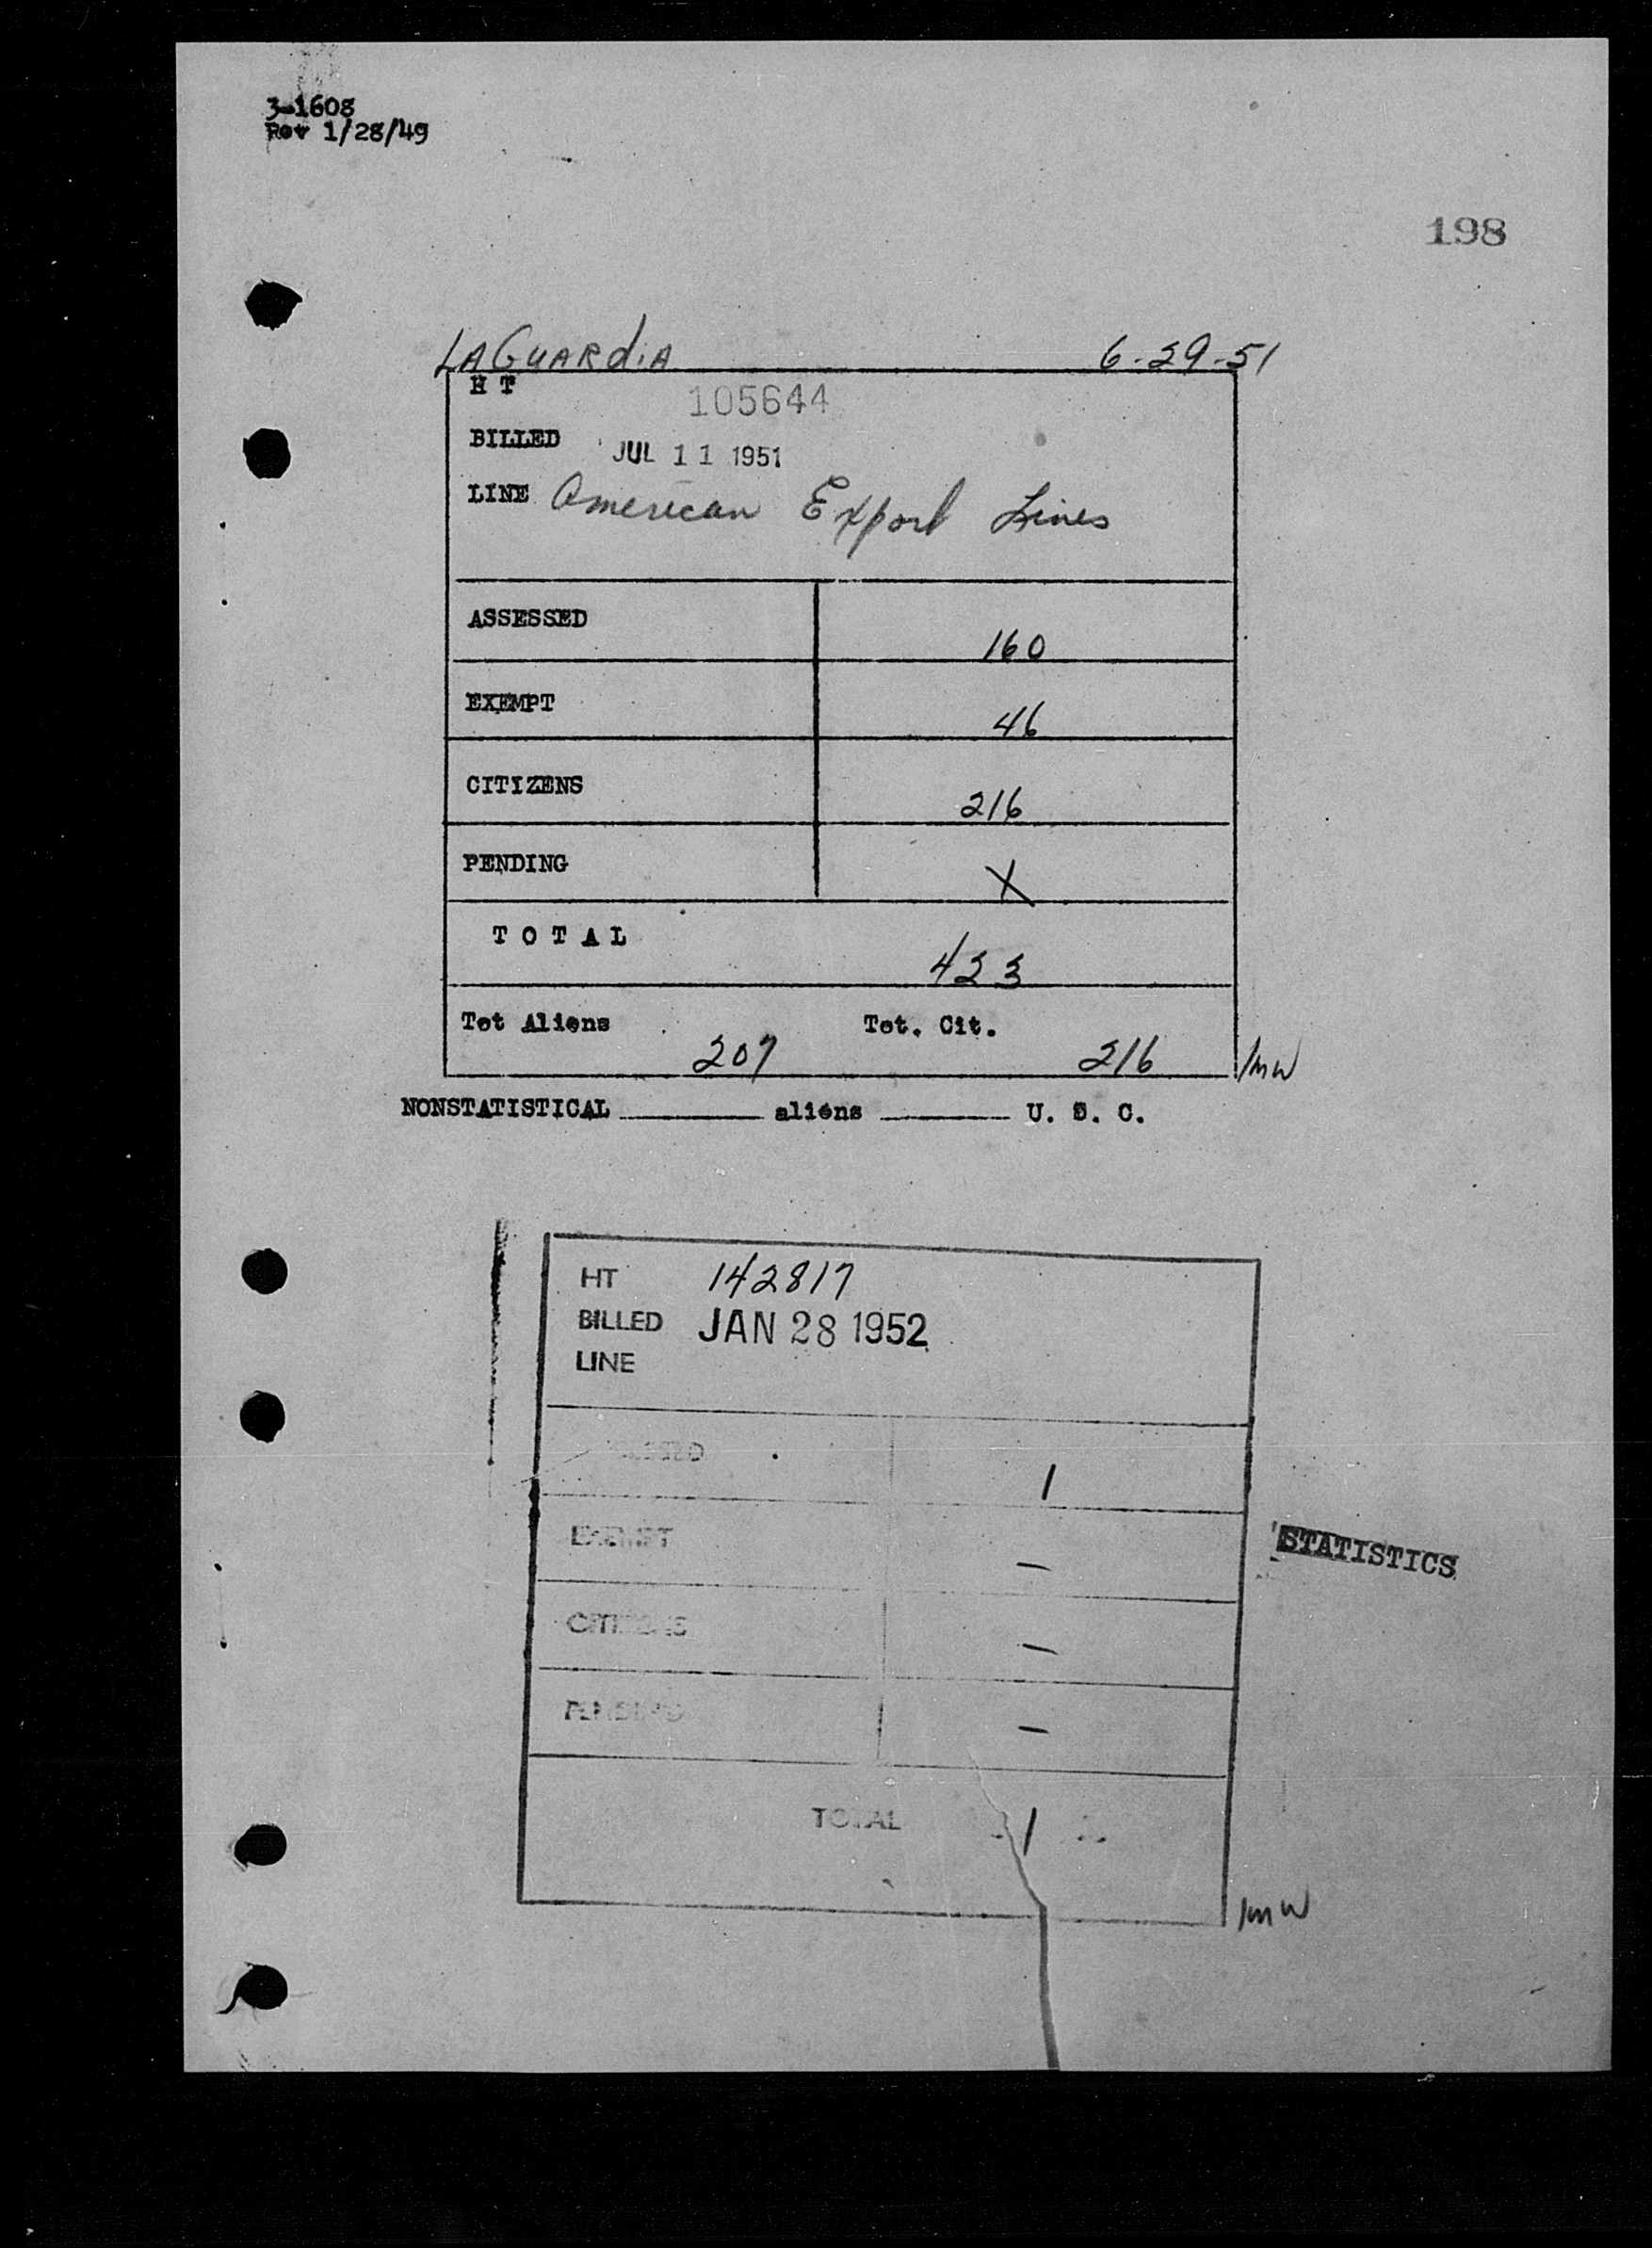 3-1608
Rev 1/28/49
198
LAGUARdiA 6-29-51
H T 105644
BILLED JUL 11 1951
LINE American Export Lines
ASSESSED 160
EXEMPT 46
CITIZENS 216
PENDING X
T O T A L 423
Tot Aliens 207 Tot. Cit. 216 /mw
NONSTATISTICAL ______ aliens ______ U. S. C.
HT 142817
BILLED JAN 28 1952
LINE
1
EXEMPT –
STATISTICS
CITIZENS –
PENDING –
TOTAL 1
/mw